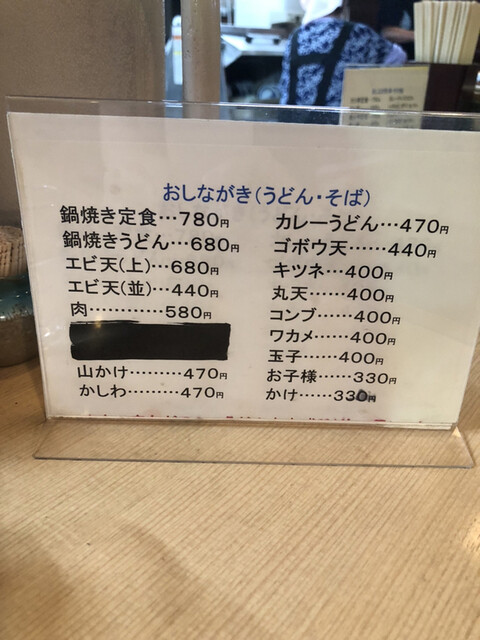 おしながき(うどん・そば)
鍋焼き定食…780円
鍋焼きうどん…680円
エビ天(上)…680円
エビ天(並)…440円
肉…………580円
山かけ………470円
かしわ………470円
カレーうどん…470円
ゴボウ天……440円
キツネ……400円
丸天……400円
コンブ……400円
ワカメ……400円
玉子……400円
お子様……330円
かけ……330円